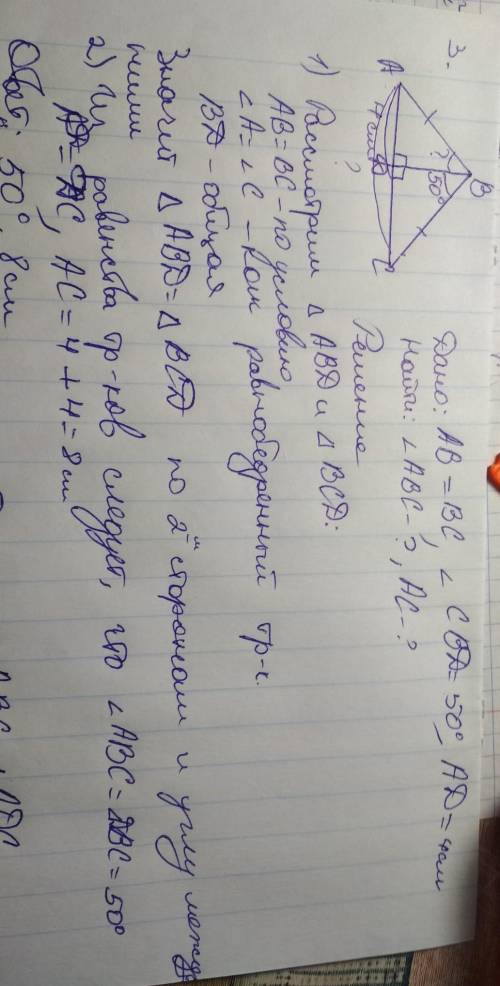 3.
A
B
C
4 см
?
?
50°
Дано: AB = BC, ∠ CBD = 50°, AD = 4см
Найти: ∠ABC - ?, AC - ?
Решение
1) Рассмотрим △ ABD и △ BCD:
AB = BC - по условию
∠A = ∠C - как равнобедренный тр-к.
BD - общая
Значит △ ABD = △ BCD по 2м сторонам и углу между
ними
2) Из равенства тр-ков следует, что ∠ABC = DBC = 50°
AD = DC, AC = 4 + 4 = 8 см
Ответ: 50°, 8 см